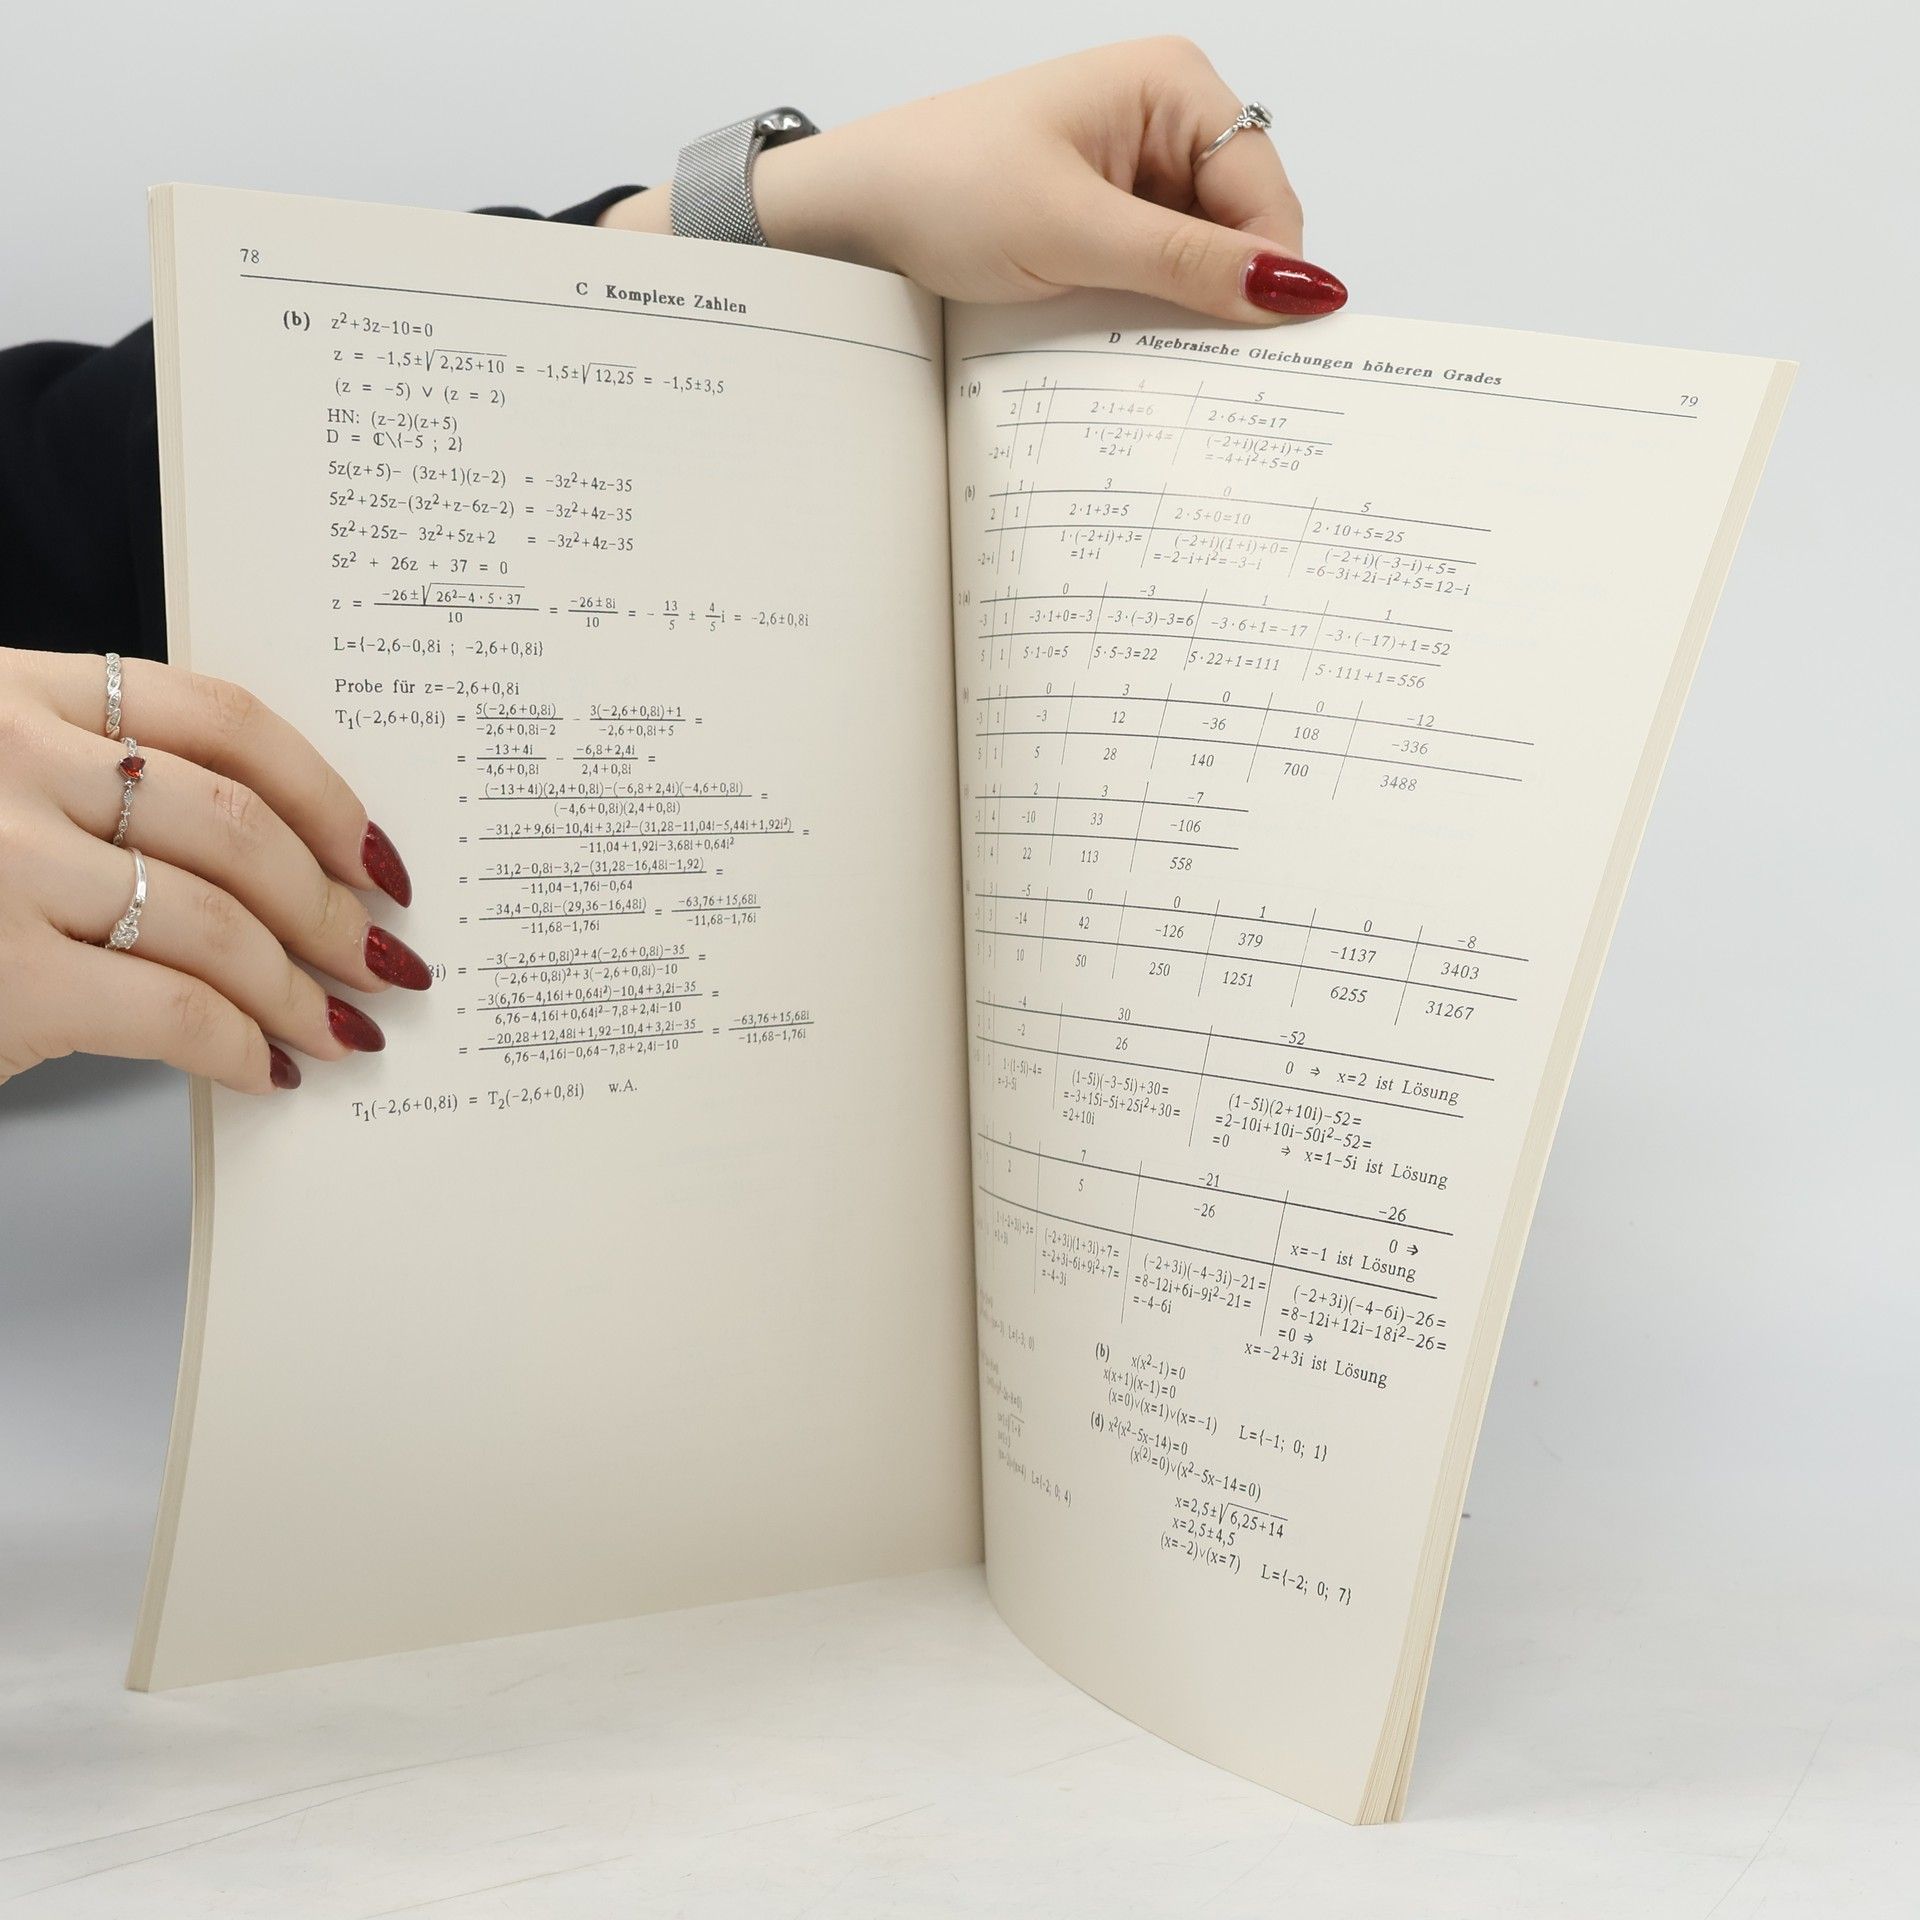 78
C Komplexe Zahlen
(b) z²+3z-10=0
z = -1,5±√2,25+10 = -1,5±√12,25 = -1,5±3,5
(z = -5) ∨ (z = 2)
HN: (z-2)(z+5)
D = ℂ\{-5 ; 2}
5z(z+5)- (3z+1)(z-2) = -3z²+4z-35
5z²+25z-(3z²+z-6z-2) = -3z²+4z-35
5z²+25z- 3z²+5z+2 = -3z²+4z-35
5z² + 26z + 37 = 0
z = (-26±√26²-4·5·37)/10 = (-26±8i)/10 = - 13/5 ± 4/5 i = -2,6±0,8i
L={-2,6-0,8i ; -2,6+0,8i}
Probe für z=-2,6+0,8i
T₁(-2,6+0,8i) = 5(-2,6+0,8i)/-2,6+0,8i-2 - 3(-2,6+0,8i)+1/-2,6+0,8i+5 =
= -13+4i/-4,6+0,8i - -6,8+2,4i/2,4+0,8i =
= (-13+4i)(2,4+0,8i)-(-6,8+2,4i)(-4,6+0,8i)/(-4,6+0,8i)(2,4+0,8i) =
= -31,2+9,6i-10,4i+3,2i²-(31,28-11,04i-5,44i+1,92i²)/-11,04+1,92i-3,68i+0,64i² =
= -31,2-0,8i-3,2-(31,28-16,48i-1,92)/-11,04-1,76i-0,64 =
= -34,4-0,8i-(29,36-16,48i)/-11,68-1,76i = -63,76+15,68i/-11,68-1,76i
i) = -3(-2,6+0,8i)²+4(-2,6+0,8i)-35/(-2,6+0,8i)²+3(-2,6+0,8i)-10 =
= -3(6,76-4,16i+0,64i²)-10,4+3,2i-35/6,76-4,16i+0,64i²-7,8+2,4i-10 =
= -20,28+12,48i+1,92-10,4+3,2i-35/6,76-4,16i-0,64-7,8+2,4i-10 = -63,76+15,68i/-11,68-1,76i
T₁(-2,6+0,8i) = T₂(-2,6+0,8i) w.A.
D Algebraische Gleichungen höheren Grades
79
1 (a) 1 4 5
2 1 2·1+4=6 2·6+5=17
-2+i 1 1·(-2+i)+4= (-2+i)(2+i)+5=
=2+i =-4+i²+5=0
(b) 1 3 0 5
2 1 2·1+3=5 2·5+0=10 2·10+5=25
-2+i 1 1·(-2+i)+3= (-2+i)(1+i)+0= (-2+i)(-3-i)+5=
=1+i =-2-i+i²=-3-i =6-3i+2i-i²+5=12-i
2 (a) 1 0 -3 1 1
-3 1 -3·1+0=-3 -3·(-3)-3=6 -3·6+1=-17 -3·(-17)+1=52
5 1 5·1-0=5 5·5-3=22 5·22+1=111 5·111+1=556
1 0 3 0 0 -12
-3 1 -3 12 -36 108 -336
5 1 5 28 140 700 3488
4 2 3 -7
4 -10 33 -106
5 4 22 113 558
3 -5 0 0 1 0 -8
3 -14 42 -126 379 -1137 3403
5 3 10 50 250 1251 6255 31267
-4 30 -52
-2 26 0 ⇒ x=2 ist Lösung
1·(1-5i)-4= (1-5i)(-3-5i)+30= (1-5i)(2+10i)-52=
=-3-5i =-3+15i-5i+25i²+30= =2-10i+10i-50i²-52=
=2+10i =0 ⇒ x=1-5i ist Lösung
3 7 -21 -26
2 5 -26 0 ⇒
x=-1 ist Lösung
1·(-2+3i)+3= (-2+3i)(1+3i)+7= (-2+3i)(-4-3i)-21= (-2+3i)(-4-6i)-26=
=1+3i =-2+3i-6i+9i²+7= =8-12i+6i-9i²-21= =8-12i+12i-18i²-26=
=-4-3i =-4-6i =0 ⇒
x=-2+3i ist Lösung
L={-3; 0}
(b) x(x²-1)=0
x(x+1)(x-1)=0
(x=0)∨(x=1)∨(x=-1) L={-1; 0; 1}
L={-2; 0; 4}
(d) x²(x²-5x-14)=0
(x⁽²⁾=0)∨(x²-5x-14=0)
x=2,5±√6,25+14
x=2,5±4,5
(x=-2)∨(x=7) L={-2; 0; 7}